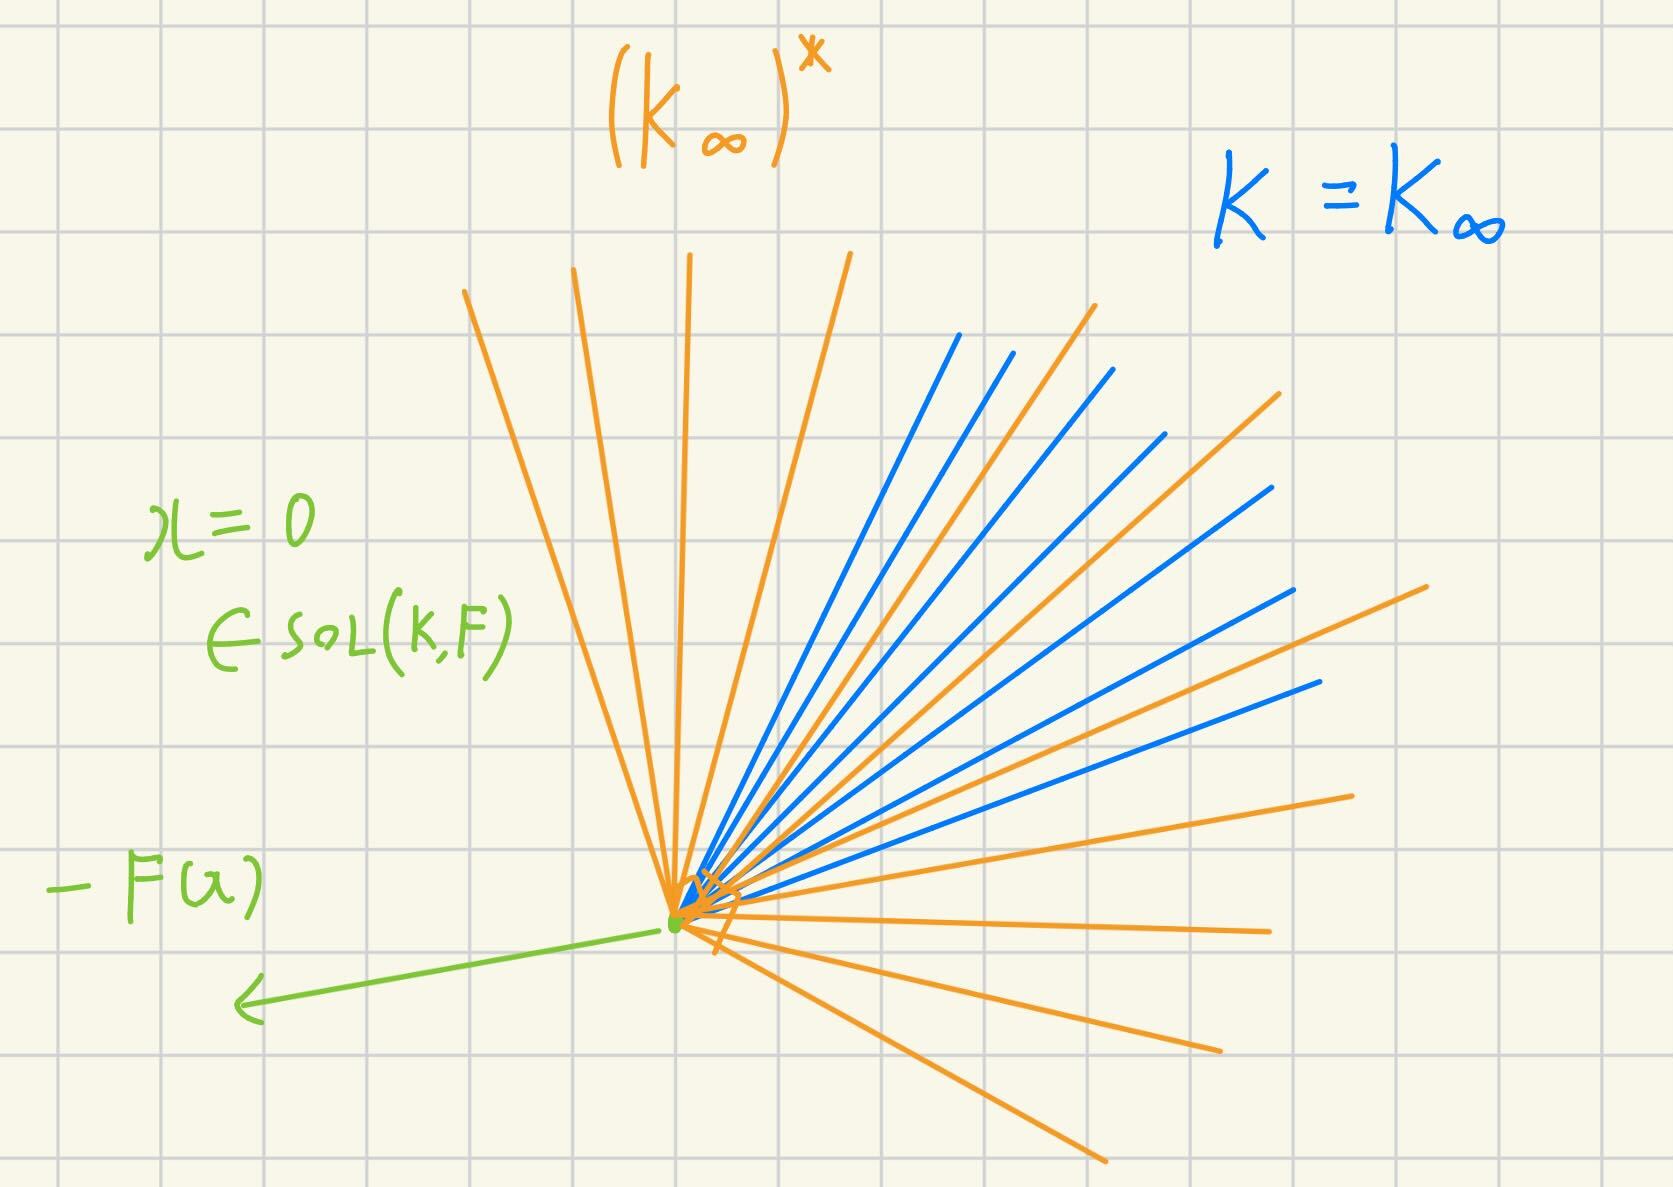 (K∞)*
K = K∞
x = 0
∈ SOL(K, F)
- F(x)